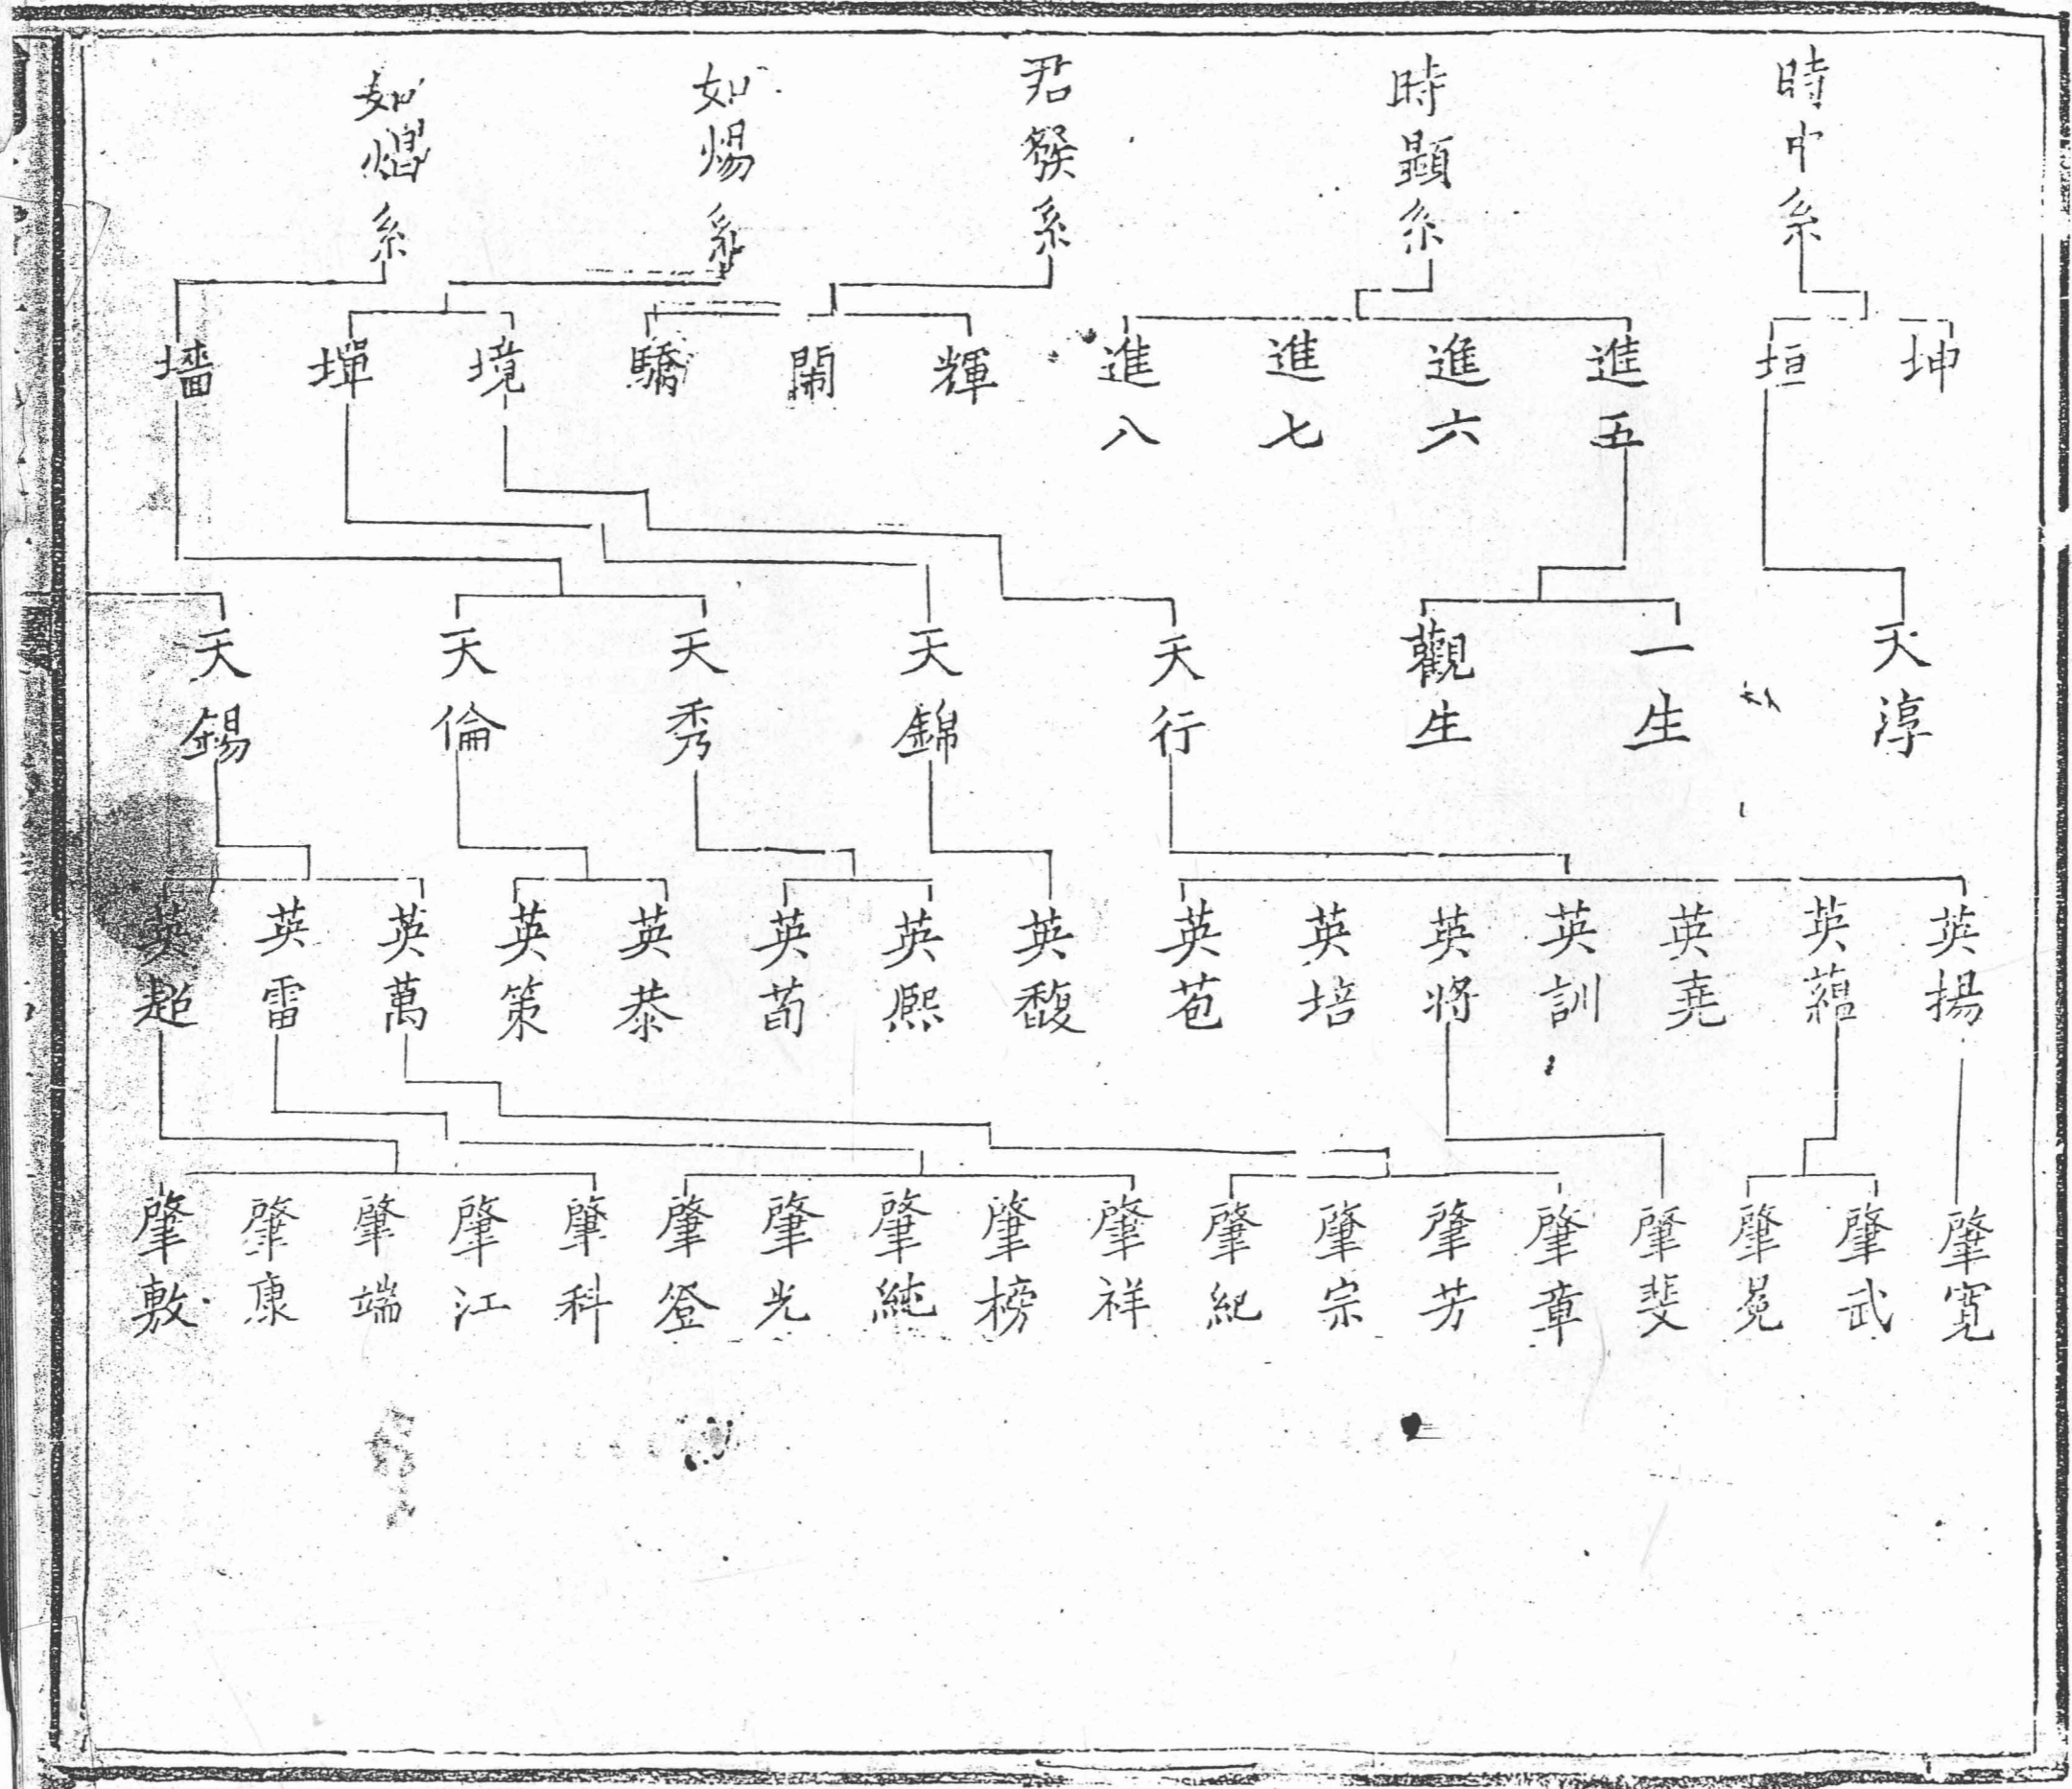 時中系
時顯系
君發系
如煬系
如熠系
坤
垣
進五
進六
進七
進八
輝
鬧
驕
境
墠
墻
天淳
一生
觀生
天行
天錦
天秀
天倫
天錫
英揚
英蘊
英堯
英訓
英將
英培
英苞
英馥
英熈
英荀
英恭
英策
英萬
英雷
英超
肇寛
肇武
肇冕
肇斐
肇章
肇芳
肇宗
肇紀
肇祥
肇榜
肇純
肇光
肇登
肇科
肇江
肇端
肇康
肇敷